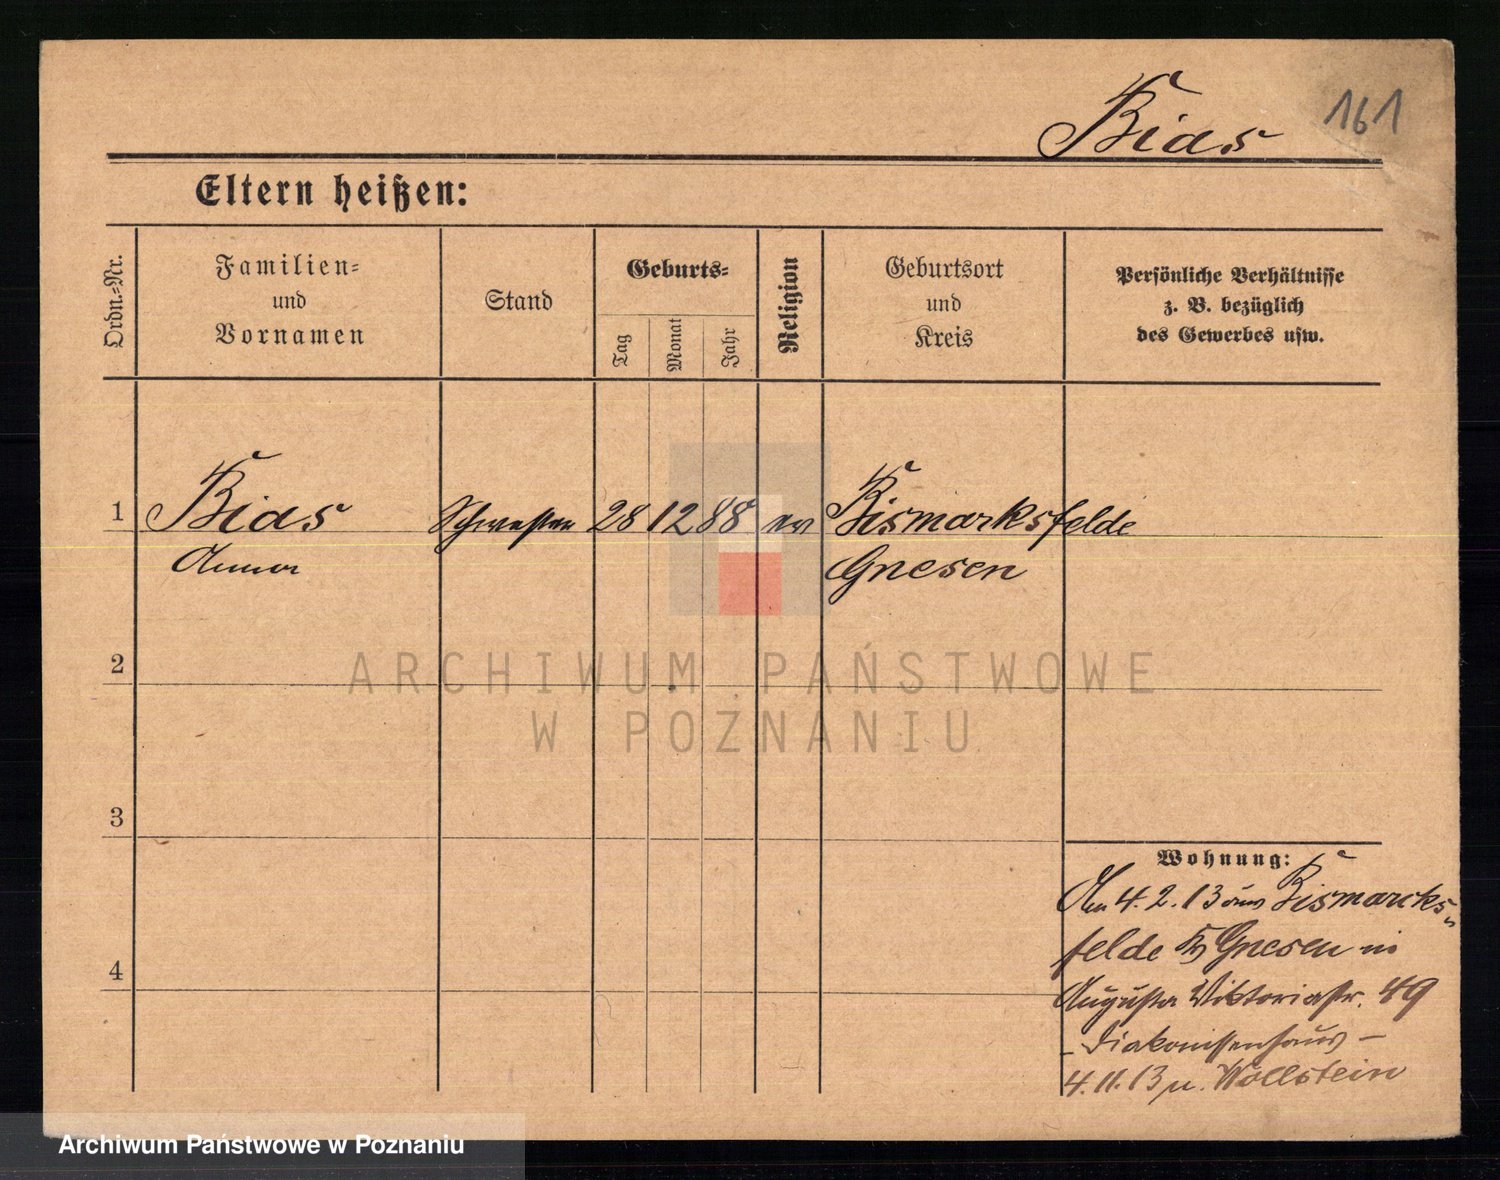 Bias
161
Eltern heißen:
Ordn.-Nr.
Familien-
und
Vornamen
Stand
Geburts-
Tag
Monat
Jahr
Religion
Geburtsort
und
Kreis
Persönliche Verhältnisse
z. B. bezüglich
des Gewerbes usw.
1 Bias Schwester 28 12 88 ev Bismarksfelde
Anna Gnesen
2
3
4
ARCHIWUM PAŃSTWOWE
W POZNANIU
Wohnung:
Am 4.2.13 aus Bismarcks-
felde Kr Gnesen in
Augusta Viktoriastr. 49
- Diakonissenhaus -
4.11.13 n. Wollstein
Archiwum Państwowe w Poznaniu